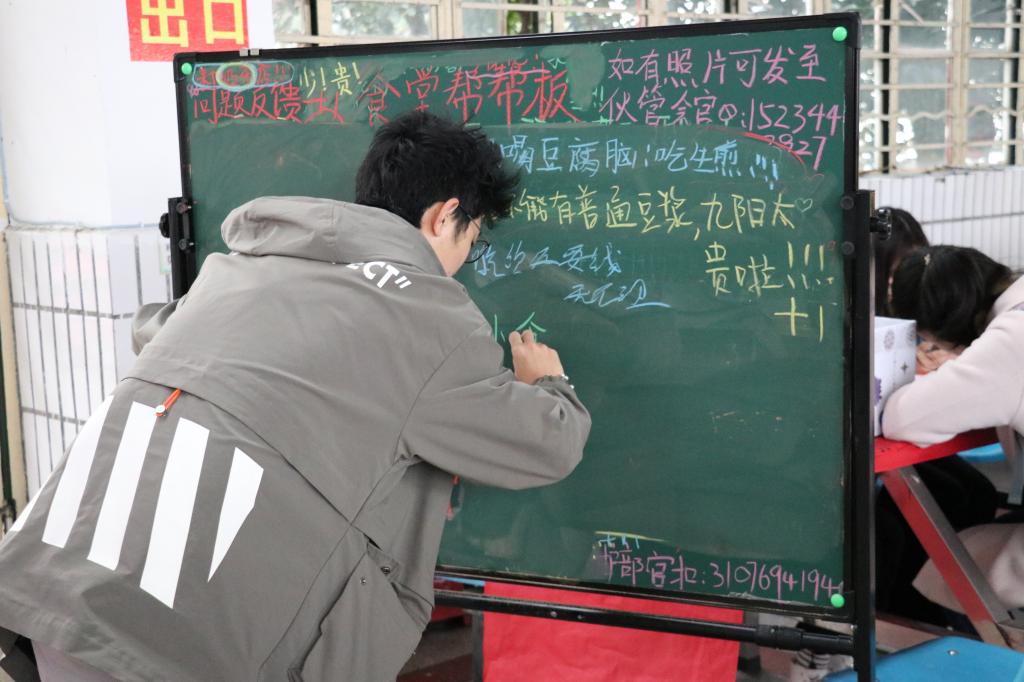 出口
少!贵!
问题反馈 食堂帮帮板
如有照片可发至
伙管会官Q:152344
2927
喝豆腐脑!吃生煎!!!
能有普通豆浆,九阳太
贵啦!!!
+1
小食
ECT"
部官扣:3107694194